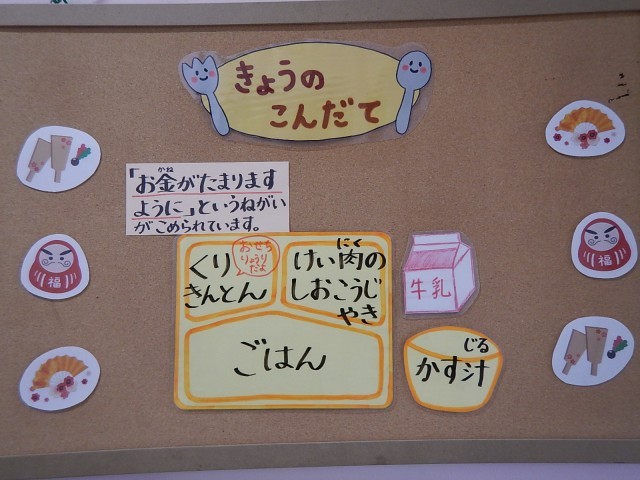 きょうの
こんだて
「お金がたまります
かね
ように」というねがい
がこめられています。
くり
きんとん
おせち
りょうり
だよ
けい肉の
にく
しおこうじ
やき
ごはん
牛乳
かす汁
じる
福
福